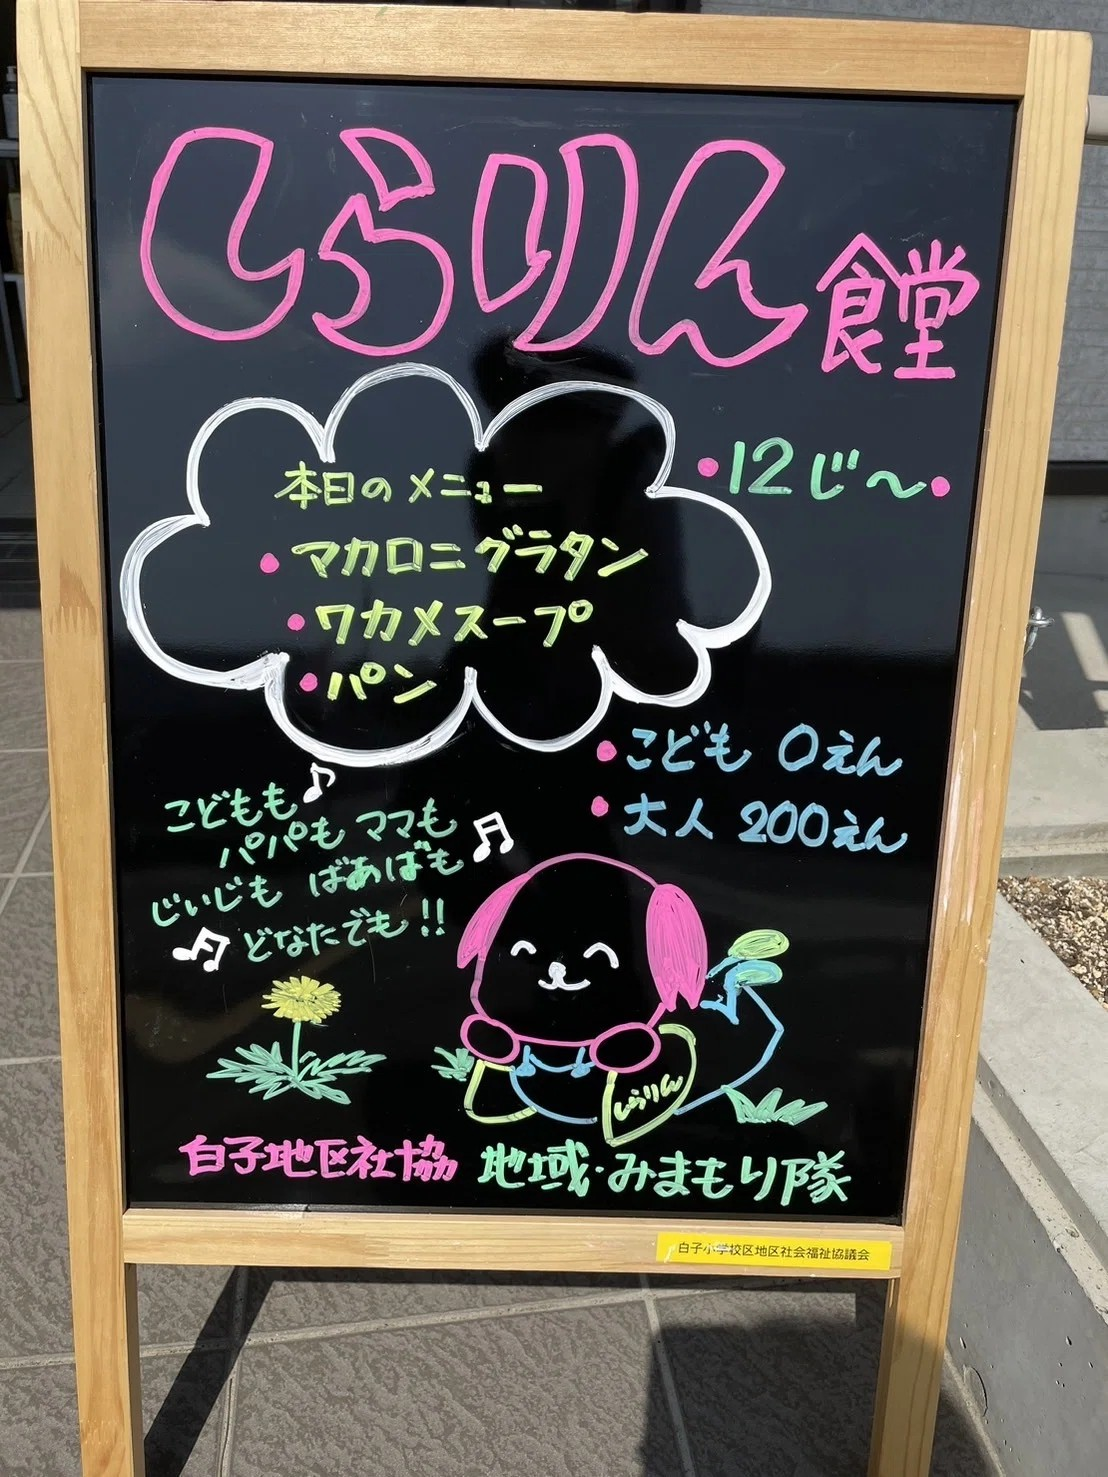 しらりん食堂
・12じ〜・
本日のメニュー
・マカロニグラタン
・ワカメスープ
・パン
・こども 0えん
・大人 200えん
こどもも
パパも ママも
じいじも ばあばも
どなたでも!!
しらりん
白子地区社協 地域・みまもり隊
白子小学校区地区社会福祉協議会